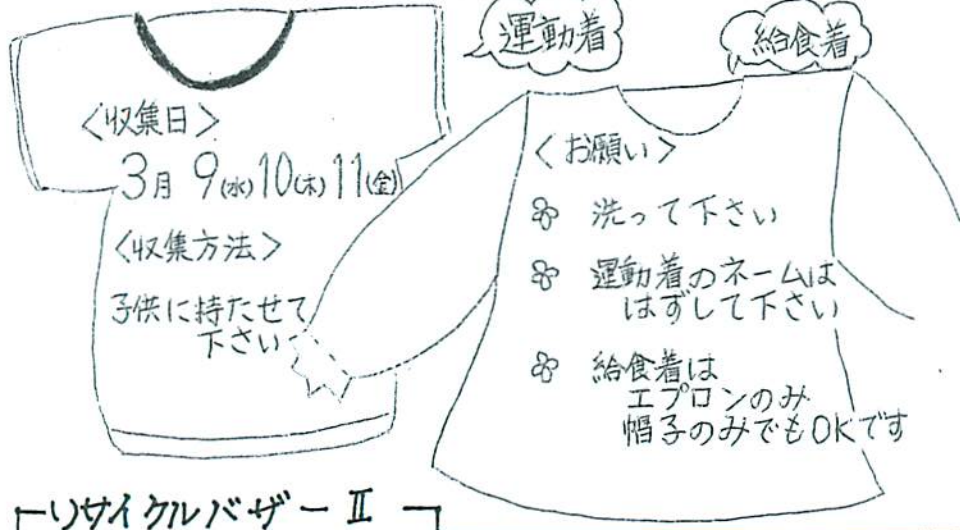 運動着
給食着
<収集日>
3月 9(水)10(木)11(金)
<収集方法>
子供に持たせて
下さい
<お願い>
洗って下さい
運動着のネームは
はずして下さい
給食着は
エプロンのみ
帽子のみでもOKです
リサイクルバザーⅡ